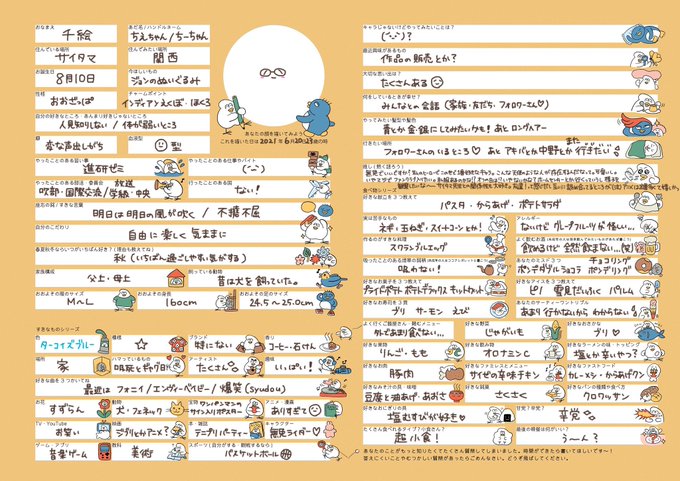 おなまえ
千絵
あだ名/ハンドルネーム
ちえちゃん/ちーちゃん
住んでいる場所
サイタマ
住んでみたい場所
関西
お誕生日
8月10日
今ほしいもの
ジョンのぬいぐるみ
性格
おおざっぱ
チャームポイント
インディアンえくぼ・ほくろ
自分の好きなところ・あんまり好きじゃないところ
人見知りしない/体が弱いところ
癖
変な声出しがち
血液型
あなたの顔を描いてみよう
これを描いた日は2021年6月20日
やったことのある習い事
進研ゼミ
やったことのあるお仕事やバイト
やったことのある部活・委員会
吹部・国際交流/学級・中央
放送
行ったことのある国
ない!
座右の銘/すきな言葉
明日は明日の風が吹く/不撓不屈
自分のこだわり
自由に楽しく気ままに
春夏秋冬ならいつがいちばん好き?(理由も教えてね)
秋(いちばん過ごしやすい気がする)
家族構成
父上・母上
飼っている動物
昔は犬を飼っていた。
おおよその服のサイズ
M〜L
おおよその身長
160cm
おおよその足のサイズ
24.5〜25.0cm
すきなものシリーズ
色
ターコイズブルー
模様
☆
ブランド
特にない
香り
コーヒー・石けん
場所
家
ハマっているもの
アーティスト
たくさん
趣味
いっぱい!
好きな曲を3つかいてね
最近はフォニイ/エンヴィーベイビー/爆笑(Syudou)
お花
すずらん
動物
犬・フェネック
宝物
ワンパンマンのサイン入りポスター
アニメ・漫画
ありすぎて
TV・YouTube
お笑い
映画
ジブリとかアニメ?
本・雑誌
テニプリパーティー
キャラクター
無免ライダー♡
ゲーム・アプリ
音楽ゲーム
教科
美術
スポーツ(自分がする 観戦するなら)
バスケットボール
キャラじゃないけどやってみたいことは?
最近興味があるもの
作品の販売とか?
大切な思い出は?
たくさんある
何をしているときが幸せ?
みんなとの会話(家族・友だち・フォロワーさん♡)
やってみたい髪型や髪色
青とか金・銀にしてみたいかも!あとロングヘアー
行きたい場所
フォロワーさんのいるところ♡ あとアキバとか中野とかまた行きたい
推し(熱く語ろう)
食べ物シリーズ
好きな献立を3つ教えて
パスタ・からあげ・ポテトサラダ
実は苦手なもの
ネギ・玉ねぎ・スイートコーンとか!
アレルギー
ないけどグレープフルーツが怪しい…
作るのがすきな料理
スクランブルエッグ
飲めるけど全然飲まない…(笑)
吸わない!
チョコリング
ポンデダブルショコラ
ポンデリング
好きなお菓子を3つ教えて
フライドポテト
キットカット
好きなアイスを3つ教えて
ピノ 雪見だいふく パルム
好きなお寿司を3貫
ブリ サーモン えび
あまり行かないからわからない
よく行くご飯屋さん・頼むメニュー
外であまり食べない…!
好きな野菜
じゃがいも
好きなおさかな
ブリ♡
好きな果物
りんご・もも
好きな飲み物
オロナミンC
好きなラーメンの味・トッピング
塩とか辛いやつ?
好きなお肉
豚肉
好きなファミレスとメニュー
サイゼの辛味チキン
好きなファストフード
カレーメシ・からあげクン
好きなおみそ汁の具・味噌
豆腐と油あげ・あおさ
好きな食感
さくさく
好きなパンの種類や食べ方
クロワッサン
好きなおにぎりの具
塩むすびが好き♡
甘党?辛党?
辛党
たくさん食べれるタイプ?小食さん?
超小食!
最後の晩餐は何がいい?
うーん?
あなたのことがもっと知りたくてたくさん質問してしまいました。時間ができたら書いてほしいです〜!
答えにくいことやむつかしい質問があったらごめんなさい。どうぞ飛ばしてください。